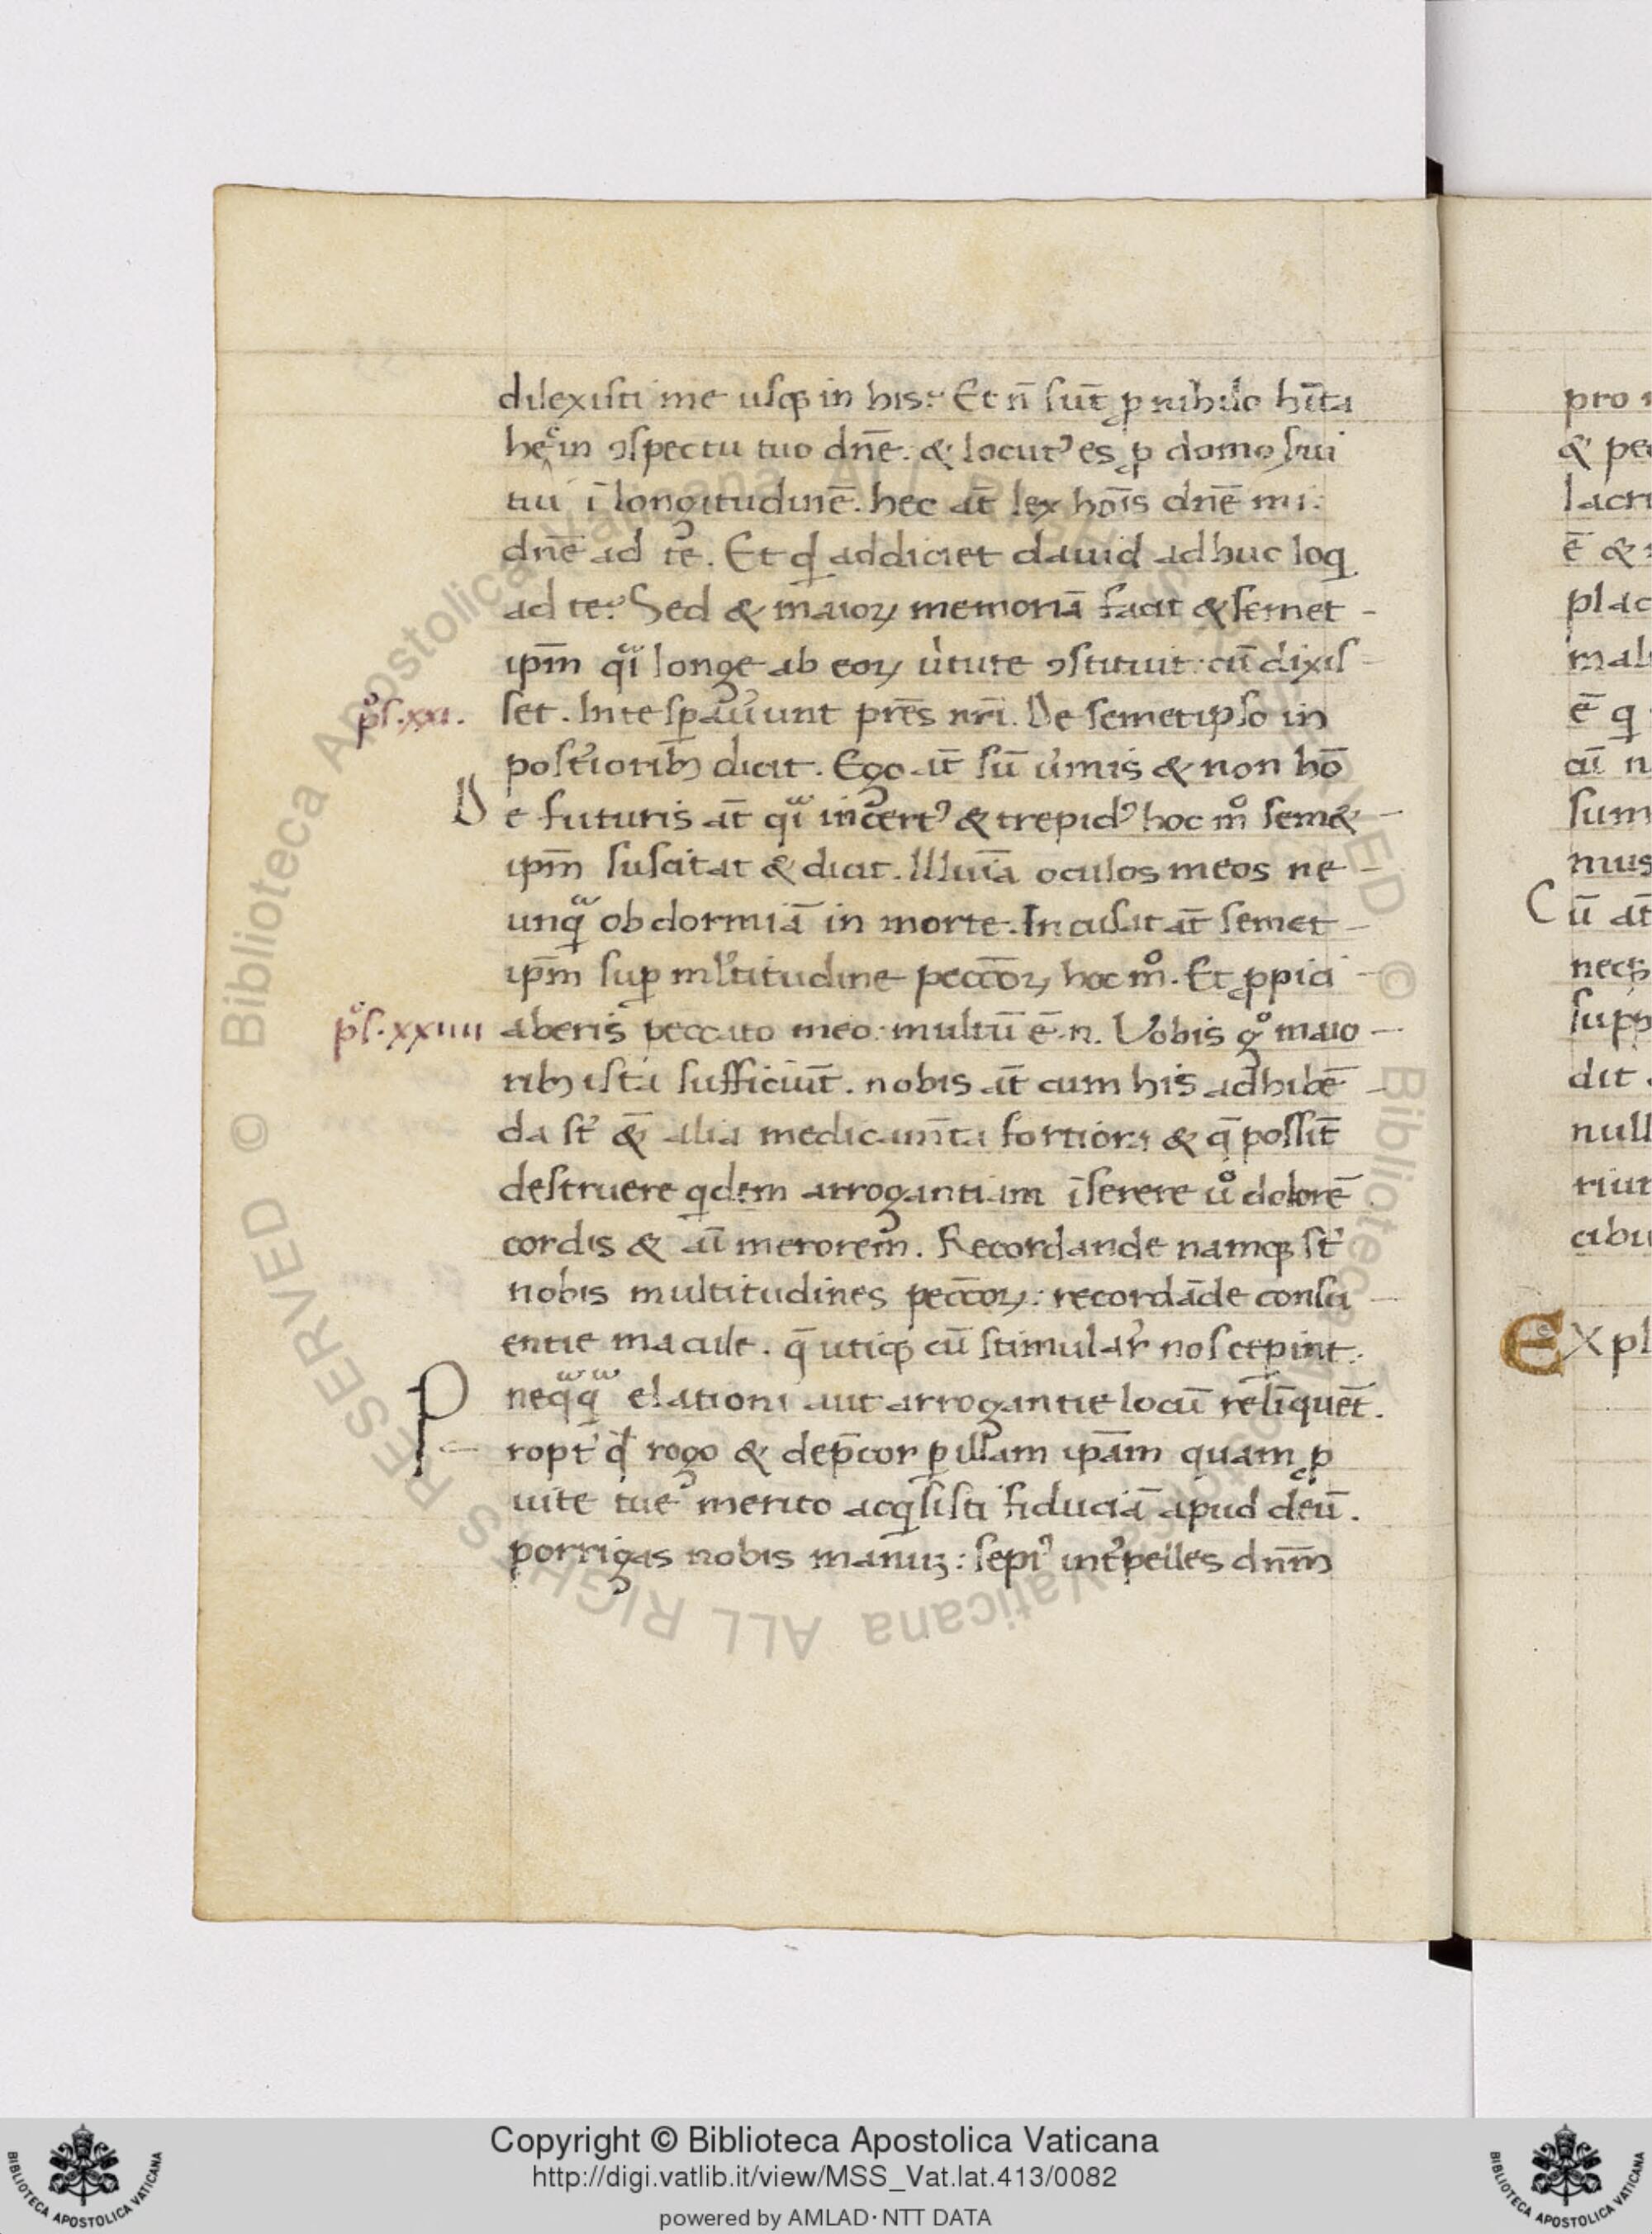 dilexisti me usqꝫ in his? Et n̄ sūt ꝓ nihilo hīta
hec in ꝯspectu tuo dn̄e. & locutꝰ es ꝓ domo sui
tui ī longitudinē. hec āt lex hōis dn̄e mi:
dn̄e ad te. Et qd addiciet dauid adhuc loqi
ad te? Sed & maioꝝ memoriā facit & semet-
ipm̄ qͣi longe ab eoꝝ u̓tute ꝯstituit: cū dixis-
pͦs.xxi. set. In te sꝑauerunt pr̄es nr̄i. De semetipso in
posterioribꝫ dicit. Ego āt sū u̓mis & non hō
De futuris āt qͣi incertꝰ & trepidꝰ hoc mͦ sem&-
ipm̄ suscitat & dicit. Illuīa oculos meos ne-
unqͣ obdormiā in morte. Incusat āt semet-
ipm̄ suꝑ ml̓titudine pecc̄oꝝ hoc mͦ. Et ꝓpici-
pͦs.xxiiii aberis peccato meo: multū ē.n. Vobis gͦ maio-
ribꝫ ista sufficiūt. nobis āt cum his adhibē-
da st̓ & alia medicam̄ta fortiora & q̄ possīt
destruere qidem arrogantiam īserere uͦ dolorē
cordis & aī merorem. Recordande namqꝫ st̓
nobis multitudines pecc̄oꝝ: recordāde consci-
entie macule. q̄ utiqꝫ cū stimular̓ nos cepint:
neqͣqͣ elationi aut arrogantie locū relīquēt.
Propt̓ qd rogo & dep̄cor ꝑ illam ipām quam ꝓ
uite tue merito acqisisti fiduciā apud deū.
porrigas nobis manuꝫ: sepiꝰ int̓pelles dn̄m
pro
& pe
lacri
ē &
plac
mali
ē q
aī n
sum
mus
Cū āt
necꝫ
dit
null
riut
cibu
Expl
Copyright © Biblioteca Apostolica Vaticana
http://digi.vatlib.it/view/MSS_Vat.lat.413/0082
powered by AMLAD·NTT DATA
BIBLIOTECA APOSTOLICA VATICANA
BIBLIOTECA APOSTOLICA VATICANA
© Biblioteca Apostolica Vaticana ALL RIGHTS RESERVED © Biblioteca Apostolica Vaticana ALL RIGHTS RESERVED